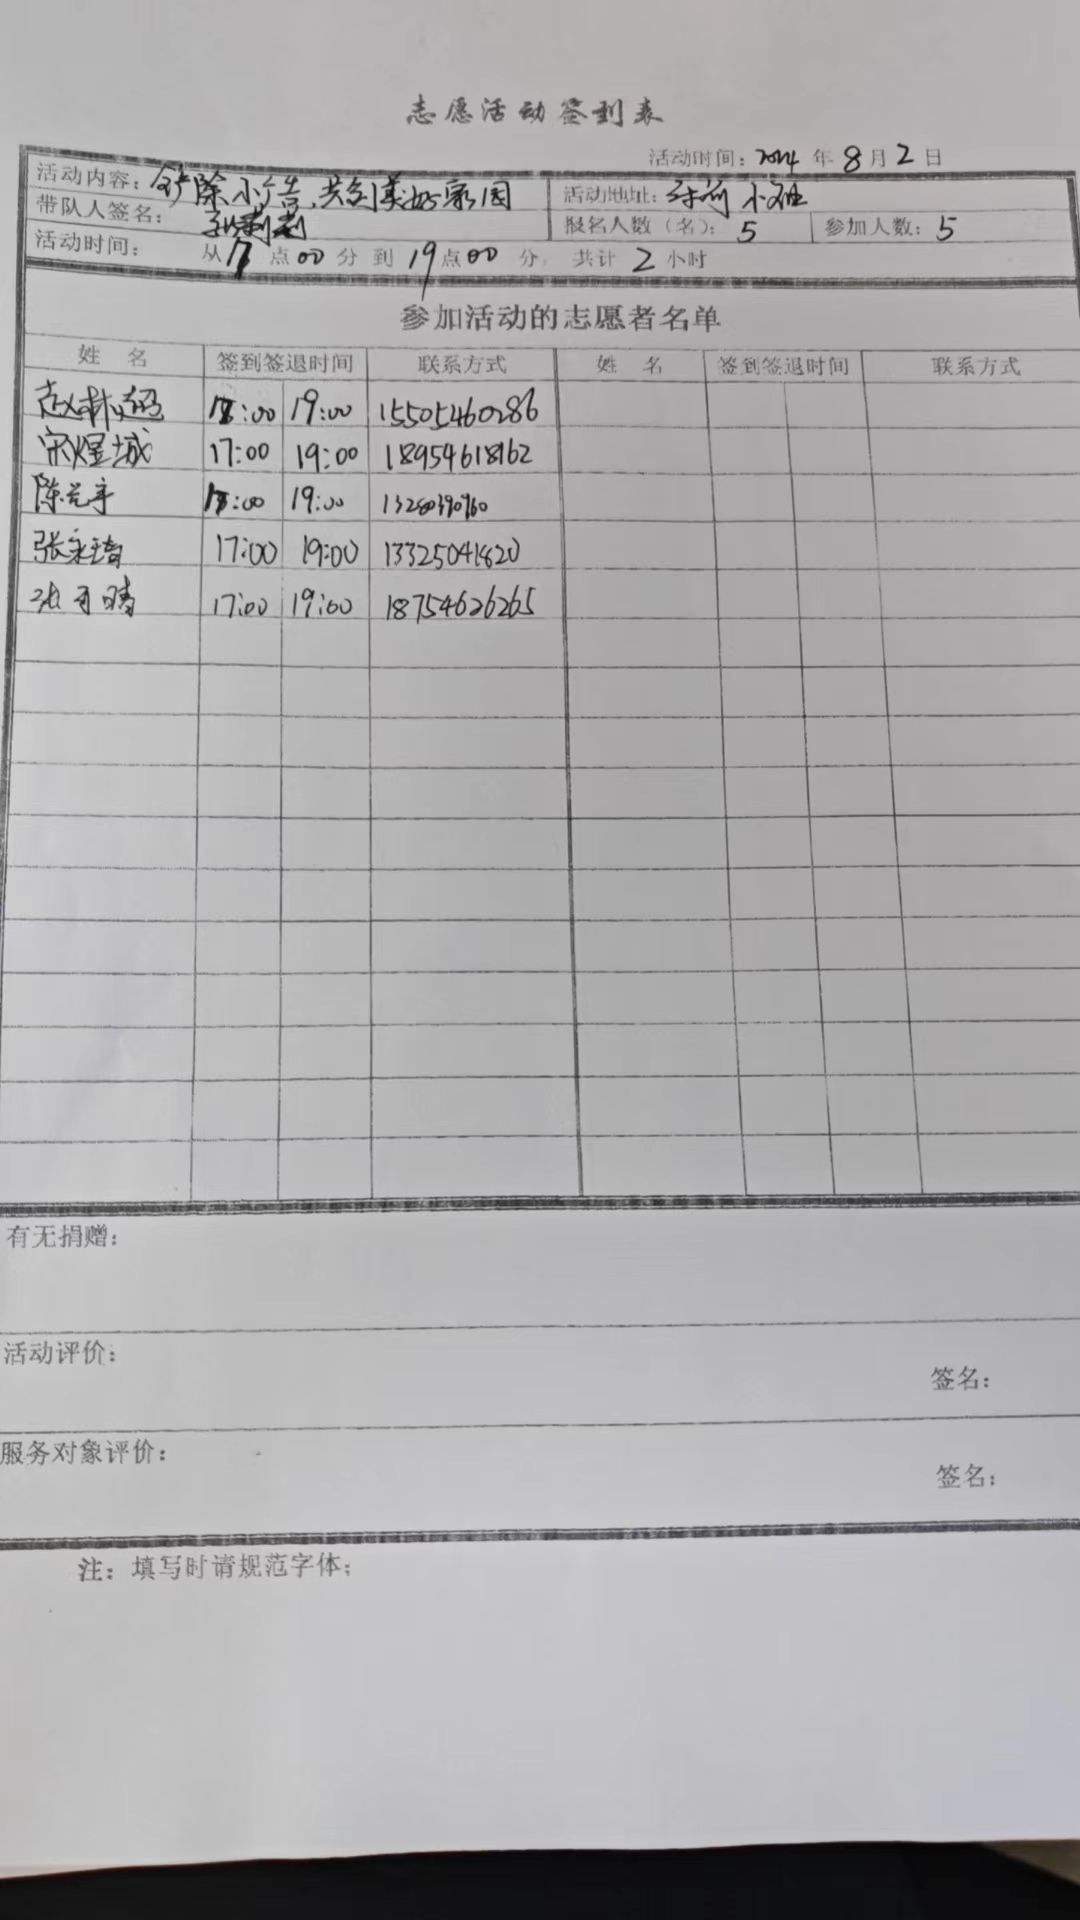 志愿活动签到表
活动时间：2024年8月2日
活动内容：铲除小广告，共创美好家园 活动地址：小组
带队人签名： 报名人数（名）：5 参加人数：5
活动时间： 从17点00分到19点00分，共计2小时
参加活动的志愿者名单
姓 名 签到签退时间 联系方式 姓 名 签到签退时间 联系方式
17:00 19:00 15505460286
宋煜城 17:00 19:00 18954618162
17:00 19:00 13280390960
17:00 19:00 13325041820
17:00 19:00 18754626265
有无捐赠：
活动评价：
签名：
服务对象评价：
签名：
注：填写时请规范字体；